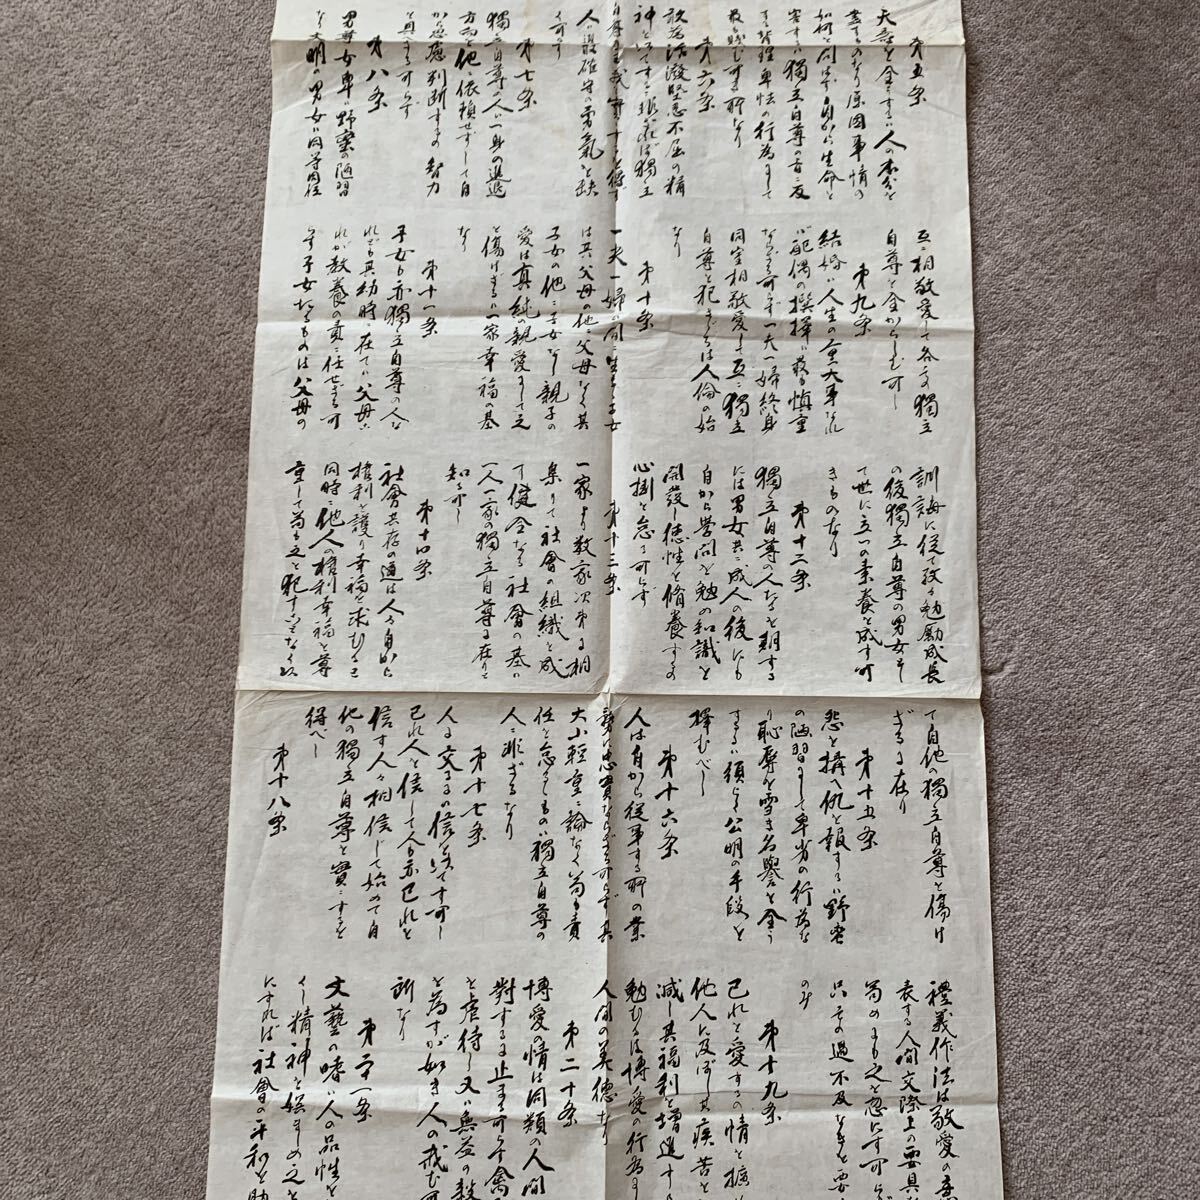 第五条
天寿を全うするは人の本分を
盡すものなり原因事情の
如何を問はず自から生命を
害するは獨立自尊の旨に反
する背理卑怯の行為にして
最も賤む可き所なり
第六条
敢為活潑堅忍不屈の精
神を以てするに非ざれば獨立
自尊の主義を実にするを得ず
人は進取確守の勇氣を缺
く可らず
第七条
獨立自尊の人は一身の進退
方向を他に依頼せずして自
から思慮判断するの智力
を具へざる可らず
第八条
男尊女卑は野蛮の陋習
なり文明の男女は同等同位
互に相敬愛して各その獨立
自尊を全からしむ可し
第九条
結婚は人生の重大事なれ
ば配偶の撰擇は最も慎重
ならざる可らず一夫一婦終身
同室相敬愛して互に獨立
自尊を犯さゞるは人倫の始
なり
第十条
一夫一婦の間に生るゝ子女
は其父母の他に父母なく其
子女の他に子女なし親子の
愛は真純の親愛にして之
を傷けざるは一家幸福の基
なり
第十一条
子女も亦獨立自尊の人な
れども其幼時に在ては父母こ
れが教養の責に任せざる可
らず子女たるものは父母の
訓誨に従て孜々勉励成長
の後獨立自尊の男女とし
て世に立つの素養を成す可
きものなり
第十二条
獨立自尊の人たるを期する
には男女共に成人の後にも
自から学問を勉め知識を
開発し徳性を脩養するの
心掛を怠る可らず
第十三条
一家より数家次第に相
集りて社會の組織を成
す健全なる社會の基は
一人一家の獨立自尊に在りと
知る可し
第十四条
社會共存の道は人々自から
権利を護り幸福を求むると
同時に他人の権利幸福を尊
重して苟も之を犯すことなく以
て自他の獨立自尊を傷け
ざるに在り
第十五条
怨を構へ仇を報ずるは野蛮
の陋習にして卑劣の行為な
り恥辱を雪ぎ名譽を全う
するには須らく公明の手段を
擇むべし
第十六条
人は自から従事する所の業
務に忠實ならざる可らず其
大小輕重に論なく苟も責
任を怠るものは獨立自尊の
人に非ざるなり
第十七条
人に交るには信を以てす可し
己れ人を信して人も亦己れを
信す人々相信じて始めて自
他の獨立自尊を實にするを
得べし
第十八条
禮義作法は敬愛の意を
表する人間交際上の要具
苟めにも之を忽にす可らず
只その過不及なきを要
のみ
第十九条
己れを愛するの情を擴め
他人に及ぼし其疾苦を
減し其福利を増進する
勉むるは博愛の行為に
人間の美徳なり
第二十条
博愛の情は同類の人間
對するに止まる可らず禽
を虐待し又は無益の殺
を為すが如き人の戒む可
所なり
第二一条
文藝の嗜は人の品性を
くし精神を娯ましめ之を
にすれば社會の平和を助